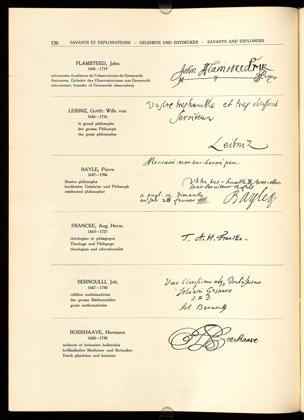 120 SAVANTS ET EXPLORATEURS - GELEHRTE UND ENTDECKER - SAVANTS AND EXPLORERS
FLAMSTEED, John
1646—1719
astronome, fondateur de l'observatoire de Greenwich
Astronom, Gründer des Observatoriums von Greenwich
astronomer, founder of Greenwich observatory
John Flamsteed
LEIBNIZ, Gottfr. Wilh. von
1646—1716
le grand philosophe
der grosse Philosoph
the great philosopher
Vostre tres humble et tres
serviteur
Leibniz
BAYLE, Pierre
1647—1706
illustre philosophe
berühmter Gelehrter und Philosoph
celebrated philosopher
Monsieur mon tres honoré pere
Bayle
FRANCKE, Aug. Herm.
1663—1727
théologien et pédagogue
Theologe und Pädagoge
theologian and educationalist
Francke
BERNOULLI, Joh.
1667—1748
célèbre mathématicien
der grosse Mathematiker
great mathematician
Joh Bernoulli
BOERHAAVE, Hermann
1668—1738
médecin et botaniste hollandais
holländischer Mediziner und Botaniker
Dutch physician and botanist
Boerhaave